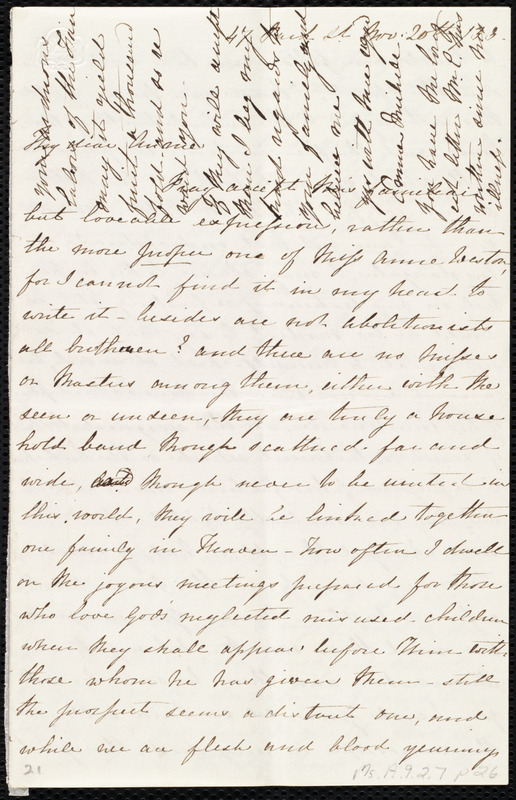 47 Park St. Nov. 20th
My dear Annie
Pray accept this familiar
but loveable expression, rather than
the more proper one of Miss Annie Weston,
for I cannot find it in my heart to
write it - besides are not abolitionists
all bretheren? and there are no Misses
or Masters among them, either with the
seen or unseen, - they are truly a house
hold band though scattered far and
wide, though never to be united in
this world, they will be linked together
one family in Heaven - How often I dwell
on the joyous meetings prepared for those
who love God's neglected misused children
when they shall appear before Him with
those whom he has given them - still
the prospect seems a distant one, and
while we are flesh and blood yearning
21
Ms. A. 9. 2. 7 p 26
labour of this Fair
may it yield
fruit a thousand
fold - and so re
ward you -
My Mother will unite
then I beg my
kind regards to
your family and
believe me
yrs with true
Emma Michell
You have the last
letter Mr. E has
written since his
illness.